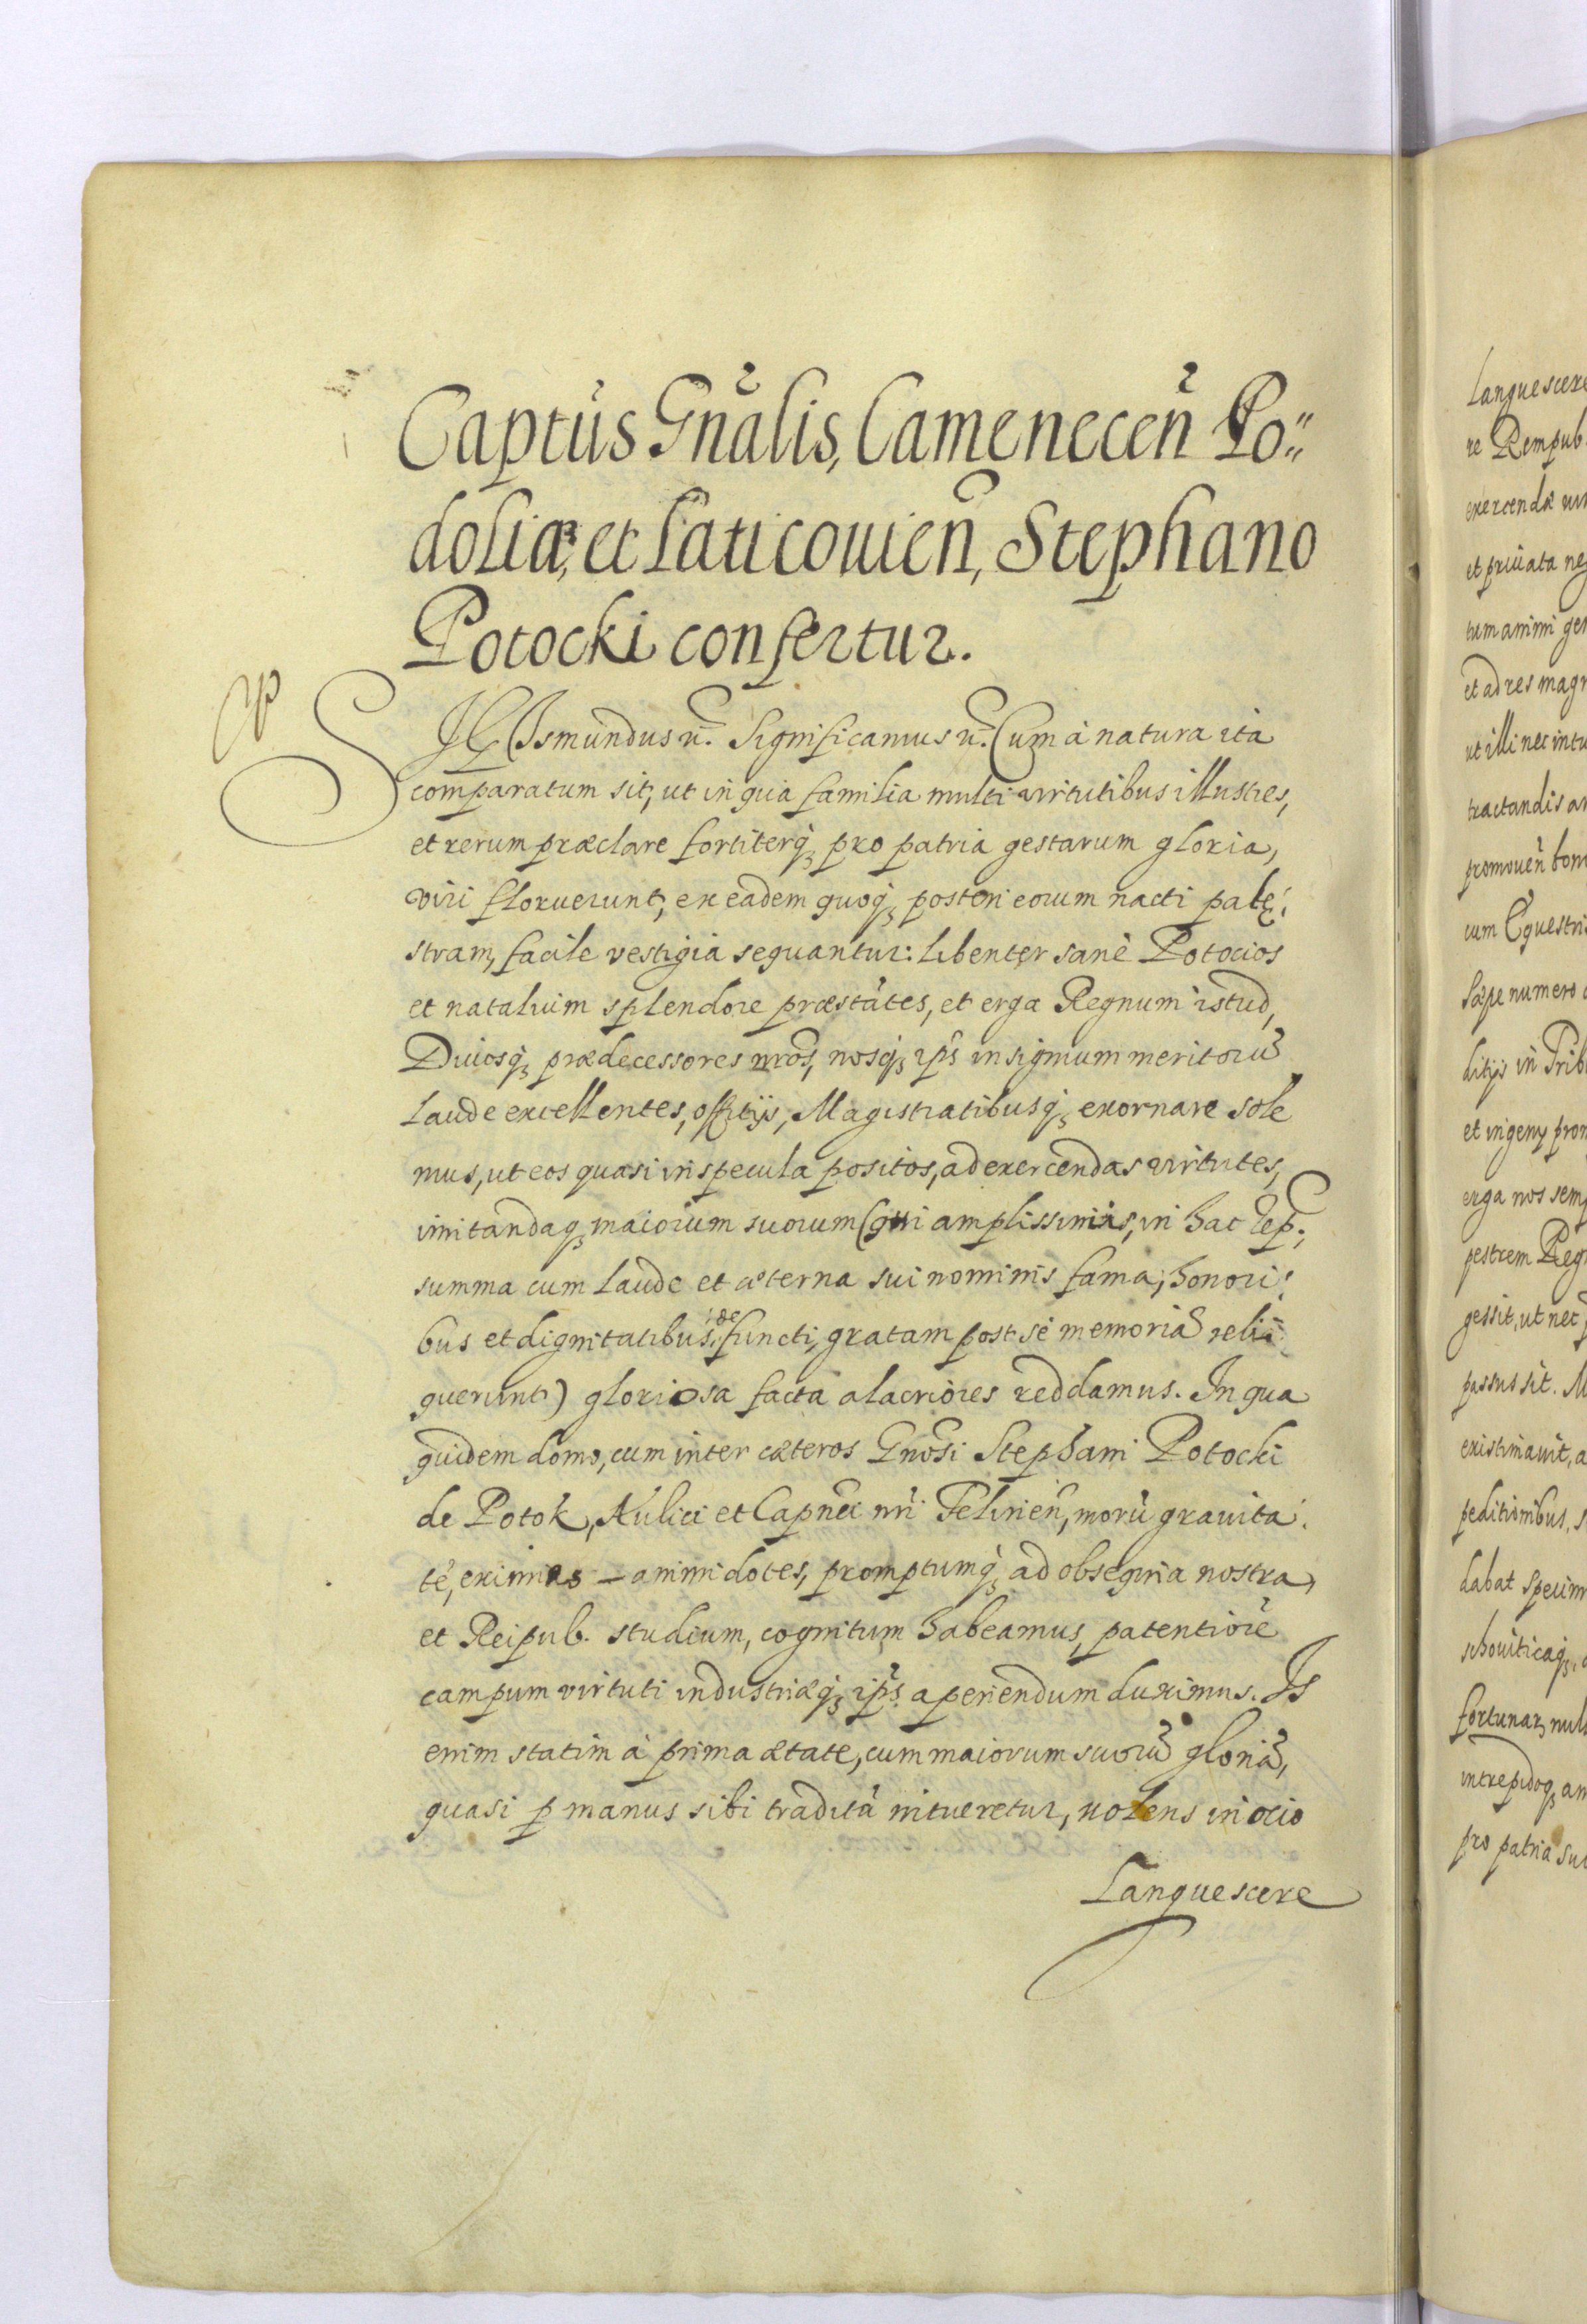 Captus Gnalis, Camenecen Po"
doliæ, et Laticouien, Stephano
Potocki confertur.
SIGIsmundus &c. Significamus &c. Cum à natura ita
comparatum sit, ut in qua familia multi virtutibus illustres,
et rerum præclare fortiterq; pro patria gestarum gloria,
viri floruerunt, ex eadem quoq; posteri eorum nacti palę:
stram, facile vestigia sequantur: libenter sanè Potocios
et natalium splendore præstātes, et erga Regnum istud,
Diuosq; prædecessores nros, nosq; ip̄s insignium meritorū
laude excellentes, officijs, Magistratibusq; exornare sole
mus, ut eos quasi in specula positos, ad exercendas virtutes,
imitandaq; maiorum suorum (qui amplissimis, in hac Rep:,
summa cum laude et æterna sui nominis fama, honori:
bus et dignitatibus, de functi, gratam post se memoriā reli:
querunt) gloriosa facta alacriores reddamus. In qua
quidem domo, cum inter cæteros Gnosi Stephani Potocki
de Potok, Aulici et Capnei nri Felinen, morū grauita:
te, eximias — animi dotes, promptumq; ad obsequia nostra,
et Reipub. studium, cognitum habeamus, patentiorē
campum virtuti industriæq; ip̄s aperiendum duximus. Is
enim statim à prima ætate, cum maiorum suorū gloriā,
quasi p manus sibi traditā intueretur, nolens in ocio
Languescere
Languescere
re Rempub
exercendæ
et priuata ne
tum animi ge
et ad res mag
ut illi nec intu
tractandis a
promouen bon
cum Equestri
Sæpe numero
ditijs in Trib
et ingenij prom
erga nos sem
pestrem Reg
gessit, ut nec
passus sit. M
existimauit, a
peditionibus, s
dabat specim
schouiticaq;
fortunar, nul
intrepidoq; an
pro patria su